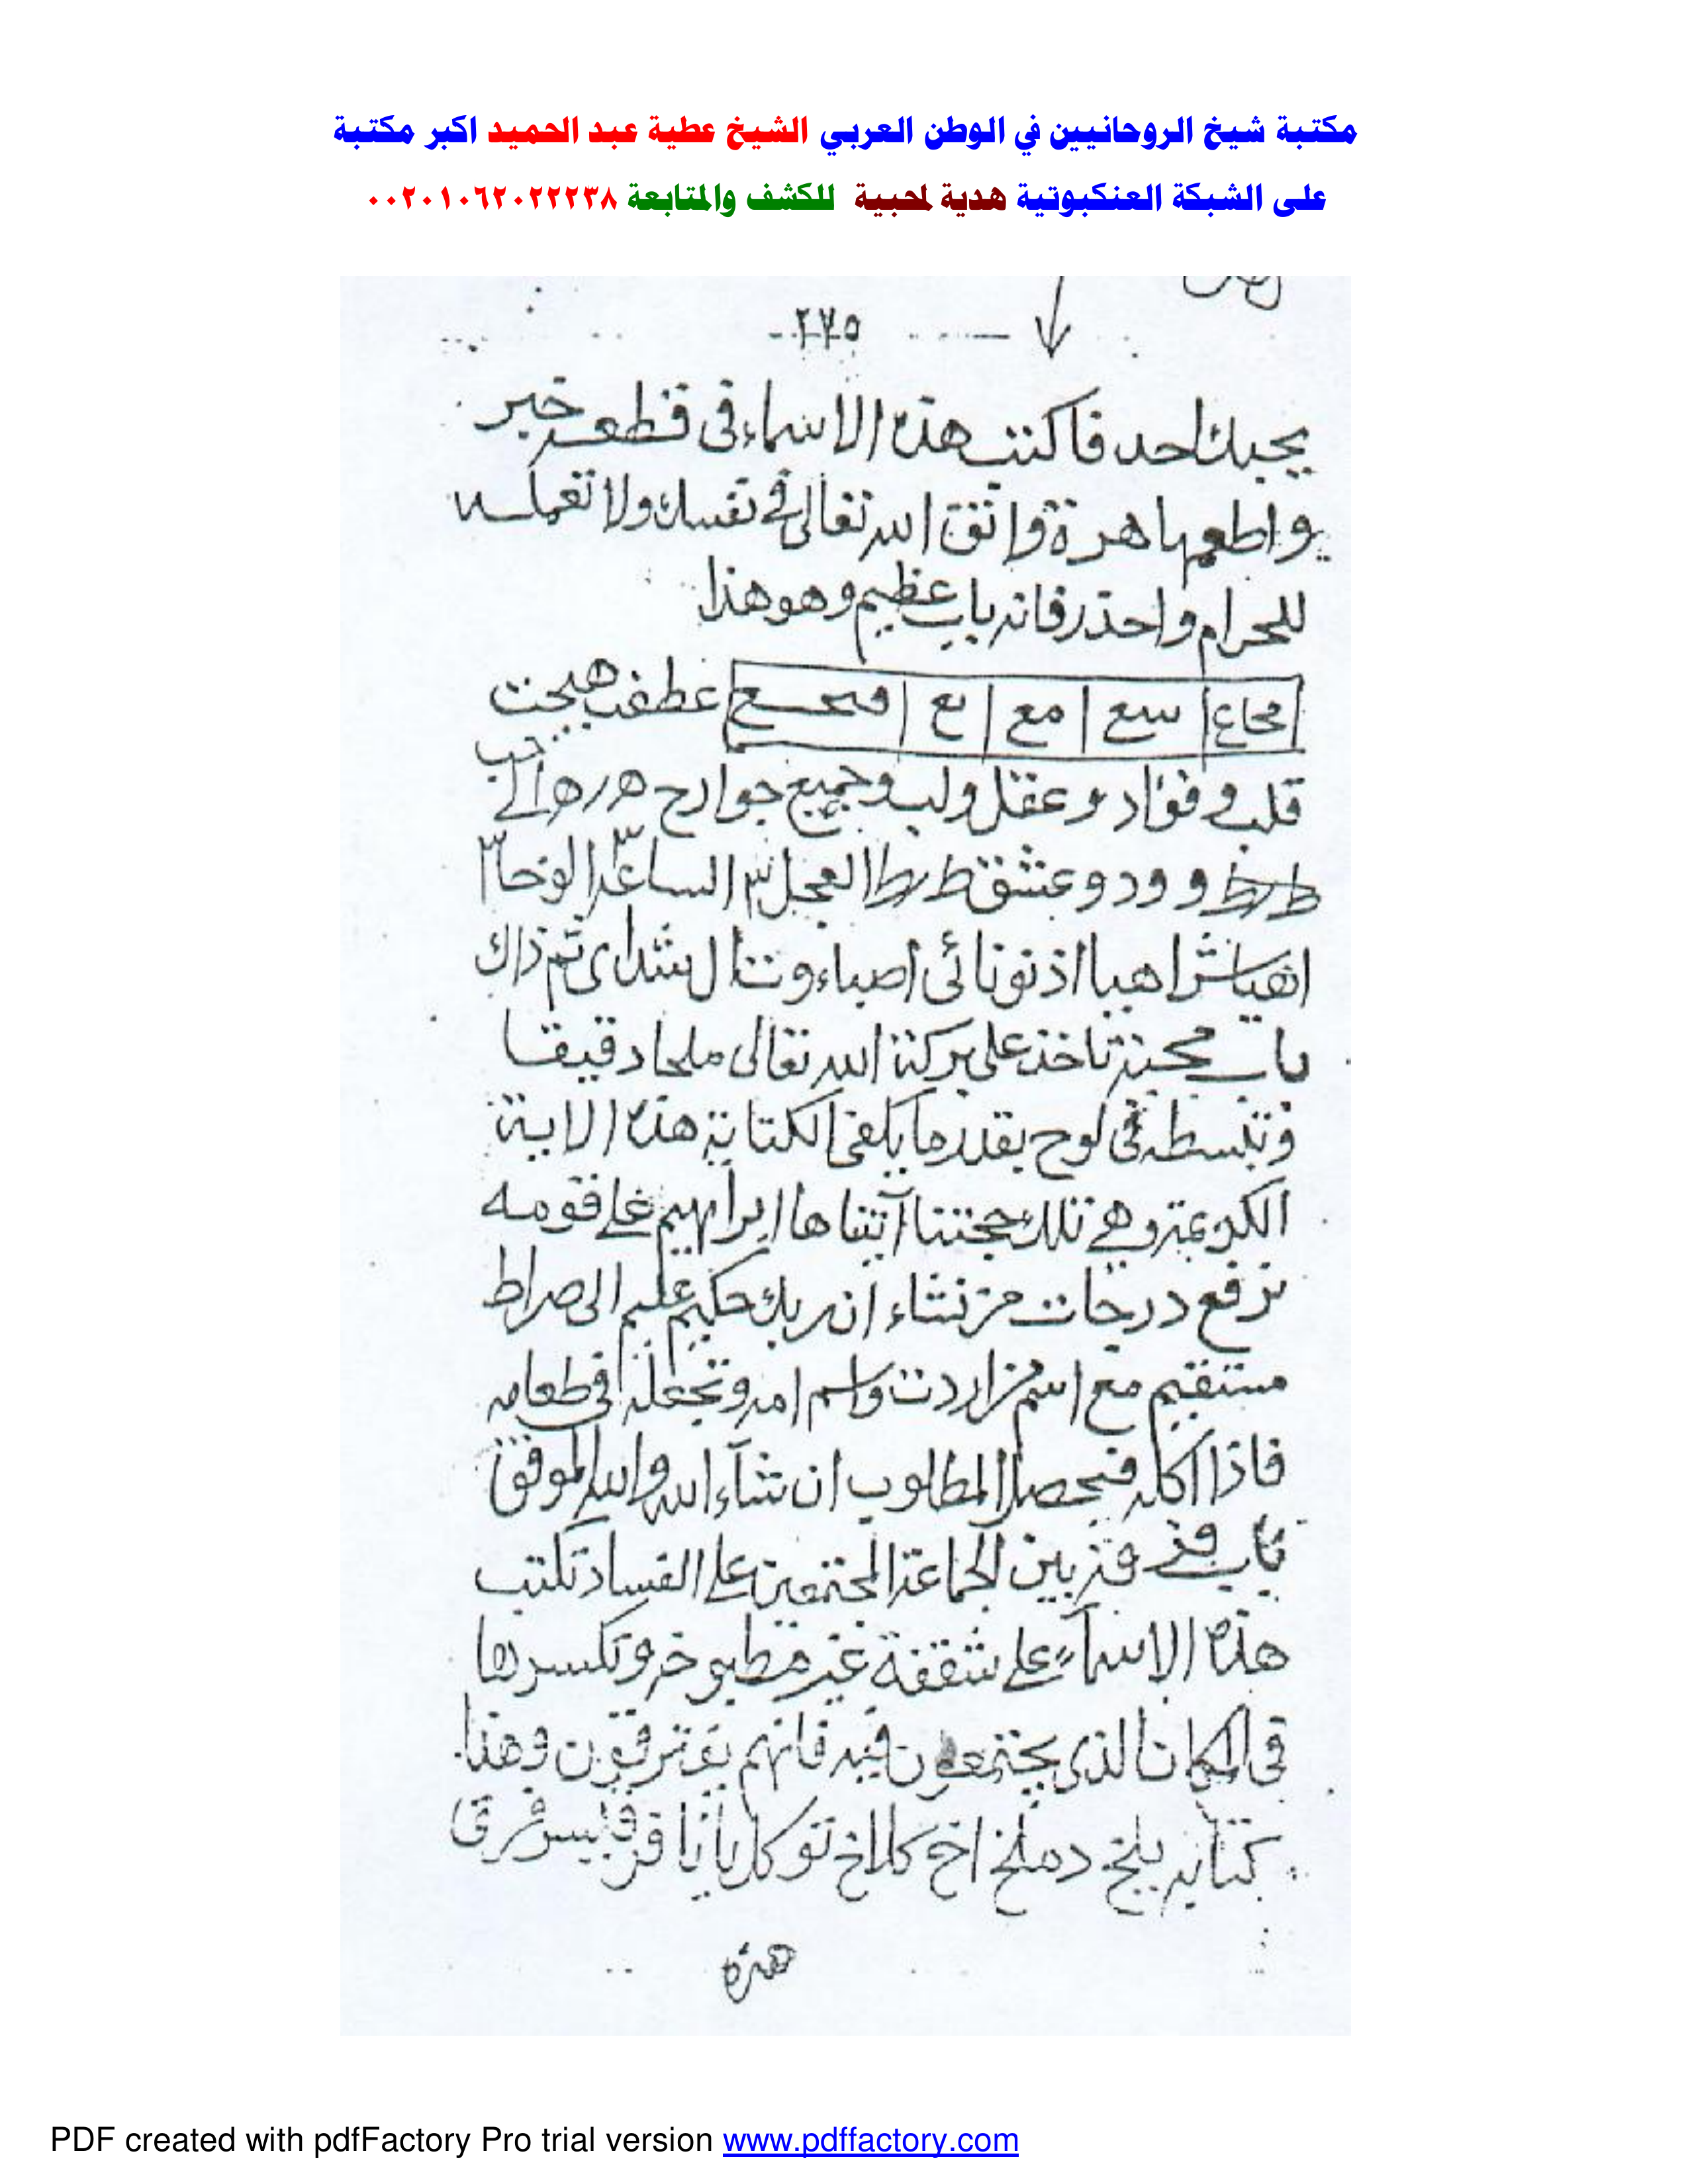 مكتبة شيخ الروحانيين في الوطن العربي الشيخ عطية عبد الحميد اكبر مكتبة
على الشبكة العنكبوتية هدية لمحبية للكشف والمتابعة ٠٠٢٠١٠٦٢٠٢٢٢٣٨
٢٧٥
يحبك احد فاكتب هذه الاسماء فى قطعه خبز
واطعمها هرة واتق الله تعالى فى نفسك ولا تعمله
للحرام واحذر فانه باب عظيم وهو هذا
سع مع عطفت هيجت
قلب وفؤاد وعقل ولب وجميع جوارح الى حب
وود وعشق العجل ٣ الساعة ٣ الوحا ٣
اهيا شراهيا اذنونائى اصباءوت ال شداى تم ذاك
باب محبة تاخذ على بركة الله تعالى ملحا دقيقا
وتبسطه فى لوح بقدر ما يكفى الكتابة هذه الاية
الكريمة وهى تلك حجتنا آتيناها ابراهيم على قومه
نرفع درجات من نشاء ان ربك حكيم عليم الى صراط
مستقيم مع اسم من اردت واسم امه وتجعله فى طعامه
فاذا اكله فيحصل المطلوب ان شآء الله والله الموفق
باب بين الجماعة المجتمعين على الفساد تكتب
هذه الاسمآء على شقفة غير مطبوخه وتكسرها
فى المكان الذى يجتمعون فيه فانهم يفترقون وهذا
كتابه توكل يا